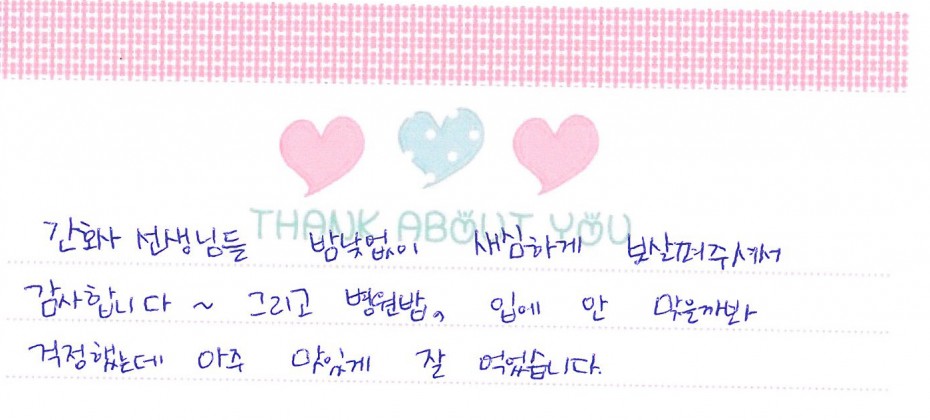 THANK ABOUT YOU
간호사 선생님들 밤낮없이 세심하게 보살펴주셔서
감사합니다 ~ 그리고 병원밥, 입에 안 맞을까봐
걱정했는데 아주 맛있게 잘 먹었습니다.